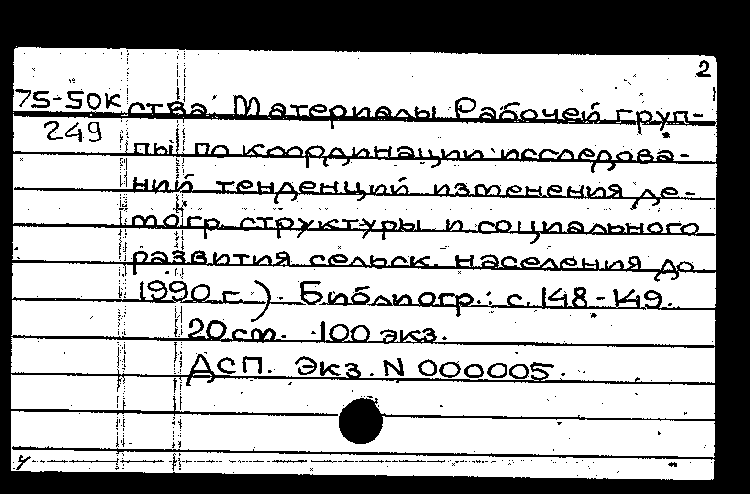 2
75-50к ства. Материалы Рабочей груп-
249
пы по координации исследова-
ний тенденций изменения де-
могр. структуры и социального
развития сельск. населения до
1990 г.). Библиогр.: с. 148-149.
20 см. 100 экз.
ДСП. Экз. N 000005.